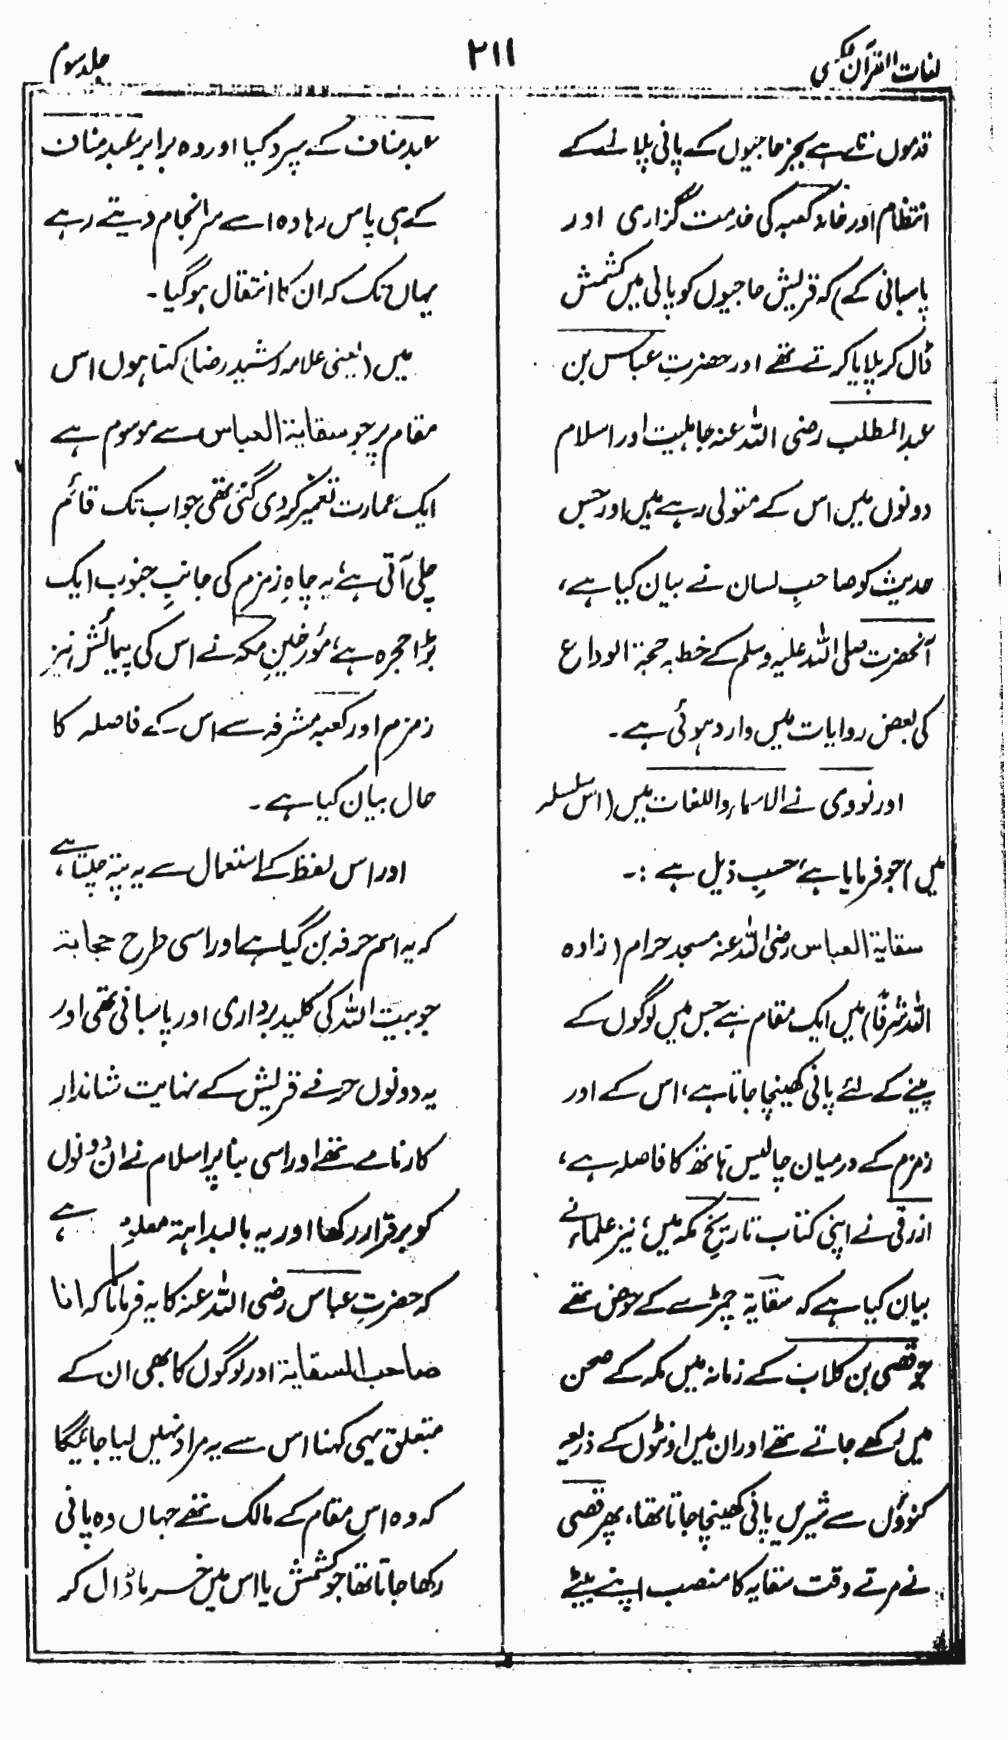 لغات القرآن
۲۱۱
جلد سوم
قدموں تلے ہے بجز حاجیوں کے پانی پلانے کے
انتظام اور خانہ کعبہ کی خدمت گزاری اور
پاسبانی کے) کہ قریش حاجیوں کو پانی میں کشمش
ڈال کر پلایا کرتے تھے اور حضرتِ عباس بن
عبدالمطلب رضی اللہ عنہ جاہلیت اور اسلام
دونوں میں اس کے متولی رہے ہیں اور جس
حدیث کو صاحبِ لسان نے بیان کیا ہے،
آنحضرت صلی اللہ علیہ وسلم کے خطبہ حجۃ الوداع
کی بعض روایات میں وارد ہوئی ہے۔
اور نووی نے الاسماء واللغات میں (اس سلسلہ
میں) جو فرمایا ہے، حسبِ ذیل ہے :۔
سقایۃ العباس رضی اللہ عنہ مسجد حرام (زادہ
اللہ شرفًا) میں ایک مقام ہے جس میں لوگوں کے
پینے کے لئے پانی کھینچا جاتا ہے، اس کے اور
زمزم کے درمیان چالیس ہاتھ کا فاصلہ ہے،
ازرقی نے اپنی کتاب تاریخِ مکہ میں، نیز علماء نے
بیان کیا ہے کہ سقایۃ چمڑے کے حوض تھے
جو قصی بن کلاب کے زمانہ میں مکہ کے صحن
میں رکھے جاتے تھے اور ان میں اونٹوں کے ذریعہ
کنوؤں سے شیریں پانی کھینچا جاتا تھا، پھر قصی
نے مرتے وقت سقایہ کا منصب اپنے بیٹے
عبد مناف کے سپرد کیا اور وہ برابر عبد مناف
کے ہی پاس رہا وہ اسے سرانجام دیتے رہے
یہاں تک کہ ان کا انتقال ہو گیا۔
میں (یعنی علامہ رشید رضا) کہتا ہوں اس
مقام پر جو سقایۃ العباس سے موسوم ہے
ایک عمارت تعمیر کر دی گئی تھی جو اب تک قائم
چلی آتی ہے، یہ چاہِ زمزم کی جانبِ جنوب ایک
بڑا حجرہ ہے، مؤرخینِ مکہ نے اس کی پیمائش نیز
زمزم اور کعبہ مشرفہ سے اس کے فاصلہ کا
حال بیان کیا ہے۔
اور اس لفظ کے استعمال سے یہ پتہ چلتا ہے،
کہ یہ اسم حرفہ بن گیا ہے اور اسی طرح حجابۃ
جو بیت اللہ کی کلید برداری اور پاسبانی تھی اور
یہ دونوں حرفے قریش کے نہایت شاندار
کارنامے تھے اور اسی بنا پر اسلام نے ان دونوں
کو برقرار رکھا اور یہ بالبداہۃ معلوم ہے،
کہ حضرتِ عباس رضی اللہ عنہ کا یہ فرمانا کہ انا
صاحب السقایۃ اور لوگوں کا بھی ان کے
متعلق یہی کہنا اس سے یہ مراد نہیں لیا جائیگا
کہ وہ اس مقام کے مالک تھے جہاں وہ پانی
رکھا جاتا تھا جو کشمش یا اس میں خرما ڈال کر